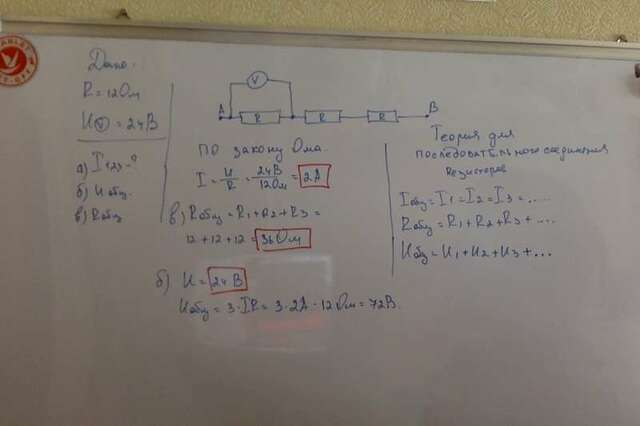 Дано:
R = 12 Ом
U(V) = 24 В
а) I 123 - ?
б) U общ
в) R общ
V
A
R
R
R
B
по закону Ома.
I = U/R = 24В/12Ом = 2 А
в) Rобщ = R1 + R2 + R3 =
12 + 12 + 12 = 36 Ом
б) U = 24 В
Uобщ = 3·IR = 3·2А·12 Ом = 72В.
Теория для
последовательного соединения
резисторов
Iобщ = I1 = I2 = I3 = .....
Rобщ = R1 + R2 + R3 + ....
Uобщ = U1 + U2 + U3 + ...